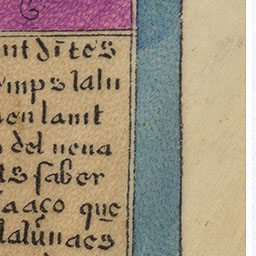 nt dites
emps lalu
en lamt
del neua
ts saber
aaço que
lalunaes